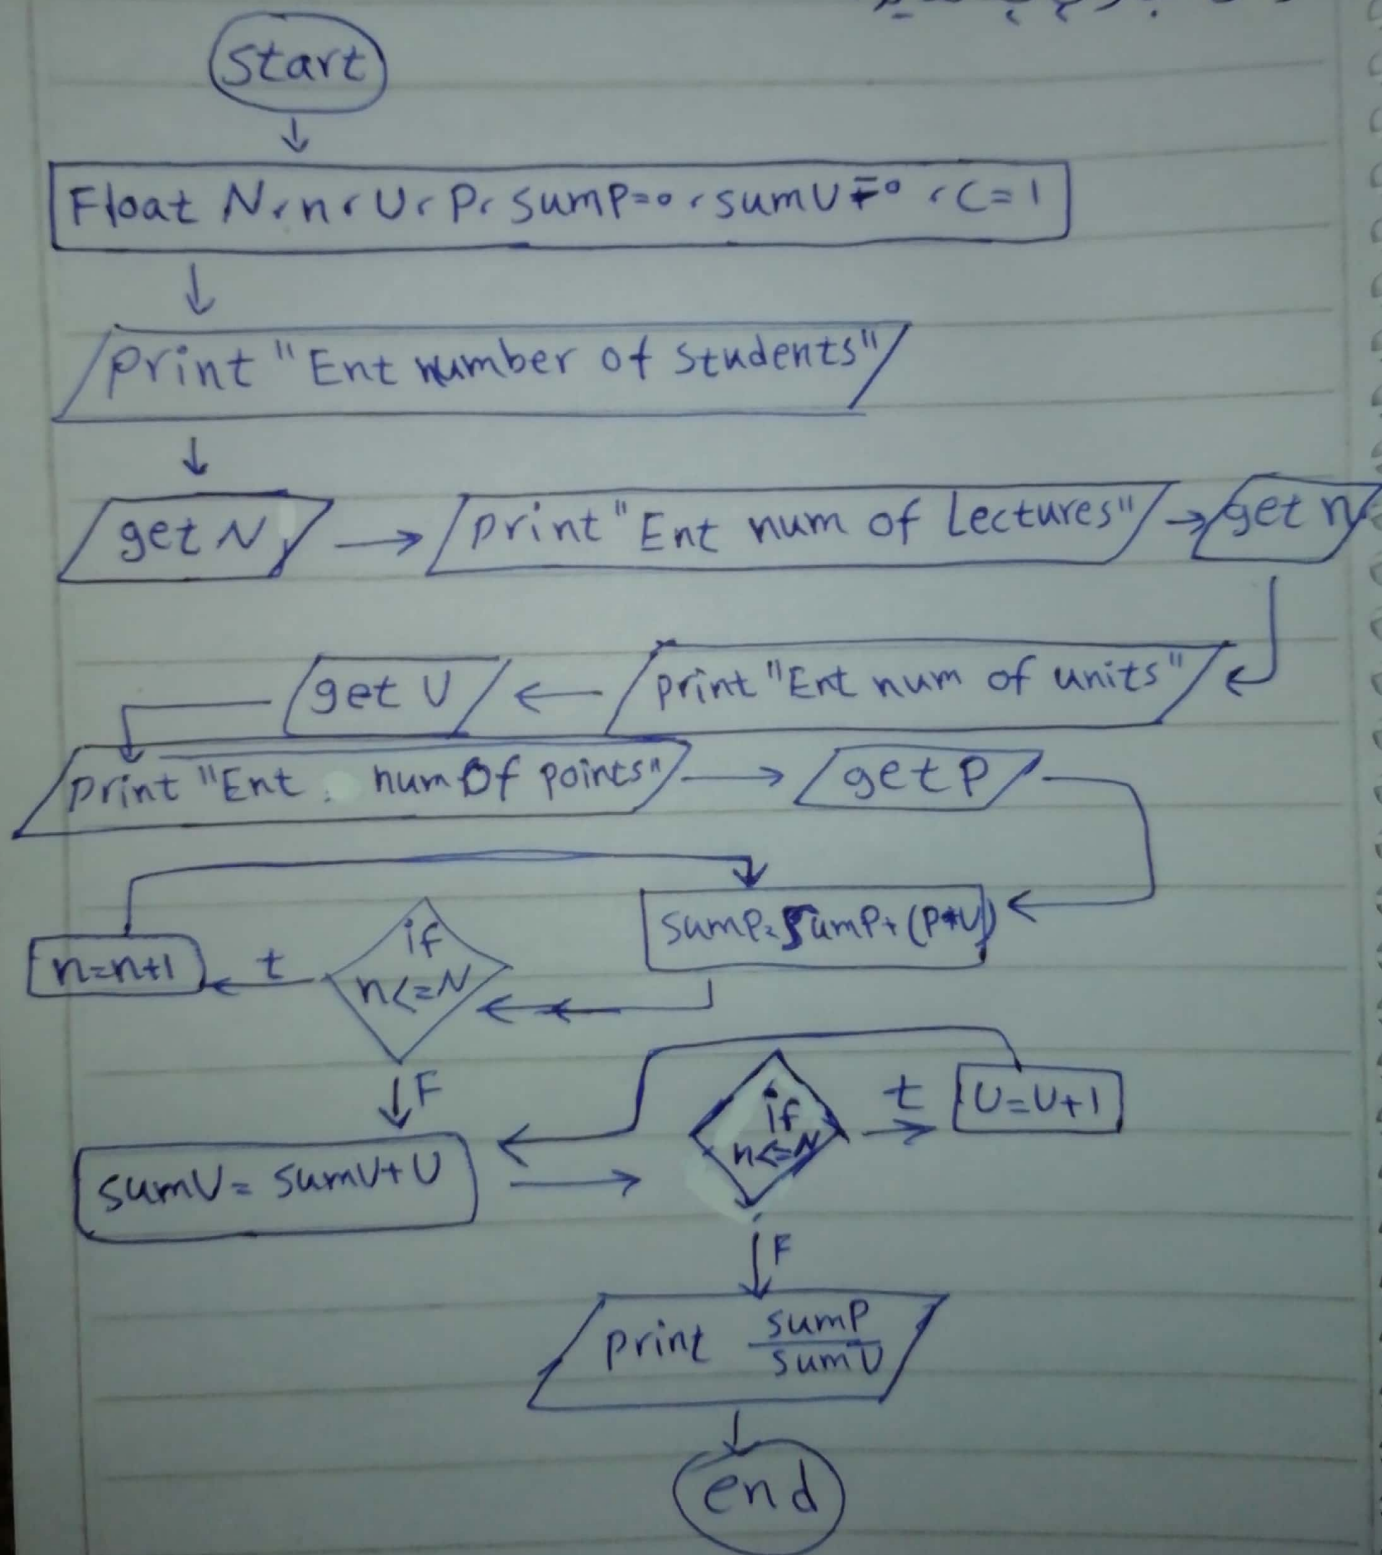 start
Float N، n، U، P، sumP=0، sumU=0، C=1
print "Ent number of students"
get N
print "Ent num of Lectures"
get n
print "Ent num of units"
get U
print "Ent num of points"
get P
sumP=sumP+(P*U)
if
n<=N
t
n=n+1
F
sumU=sumU+U
if
n<=N
t
U=U+1
F
print sumP
sumU
end